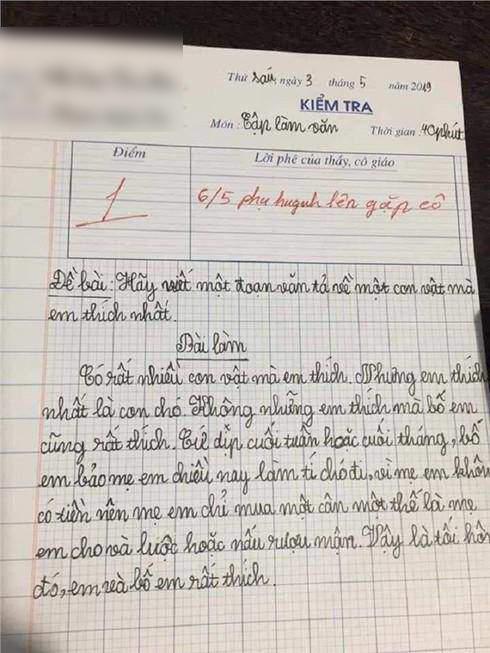 Thứ sáu, ngày 3 tháng 5 năm 2019
KIỂM TRA
Môn: Tập làm văn Thời gian: 40 phút
Điểm Lời phê của thầy, cô giáo
1 6/5 phụ huynh lên gặp cô
Đề bài: Hãy viết một đoạn văn tả về một con vật mà
em thích nhất.
Bài làm
Có rất nhiều con vật mà em thích. Nhưng em thích
nhất là con chó. Không những em thích mà bố em
cũng rất thích. Cứ dịp cuối tuần hoặc cuối tháng, bố
em bảo mẹ em chiều nay làm tí chó đi, vì mẹ em khôn
có tiền nên mẹ em chỉ mua một cân một thế là mẹ
em cho và luộc hoặc nấu rượu mận. Vậy là tối hôm
đó, em và bố em rất thích.